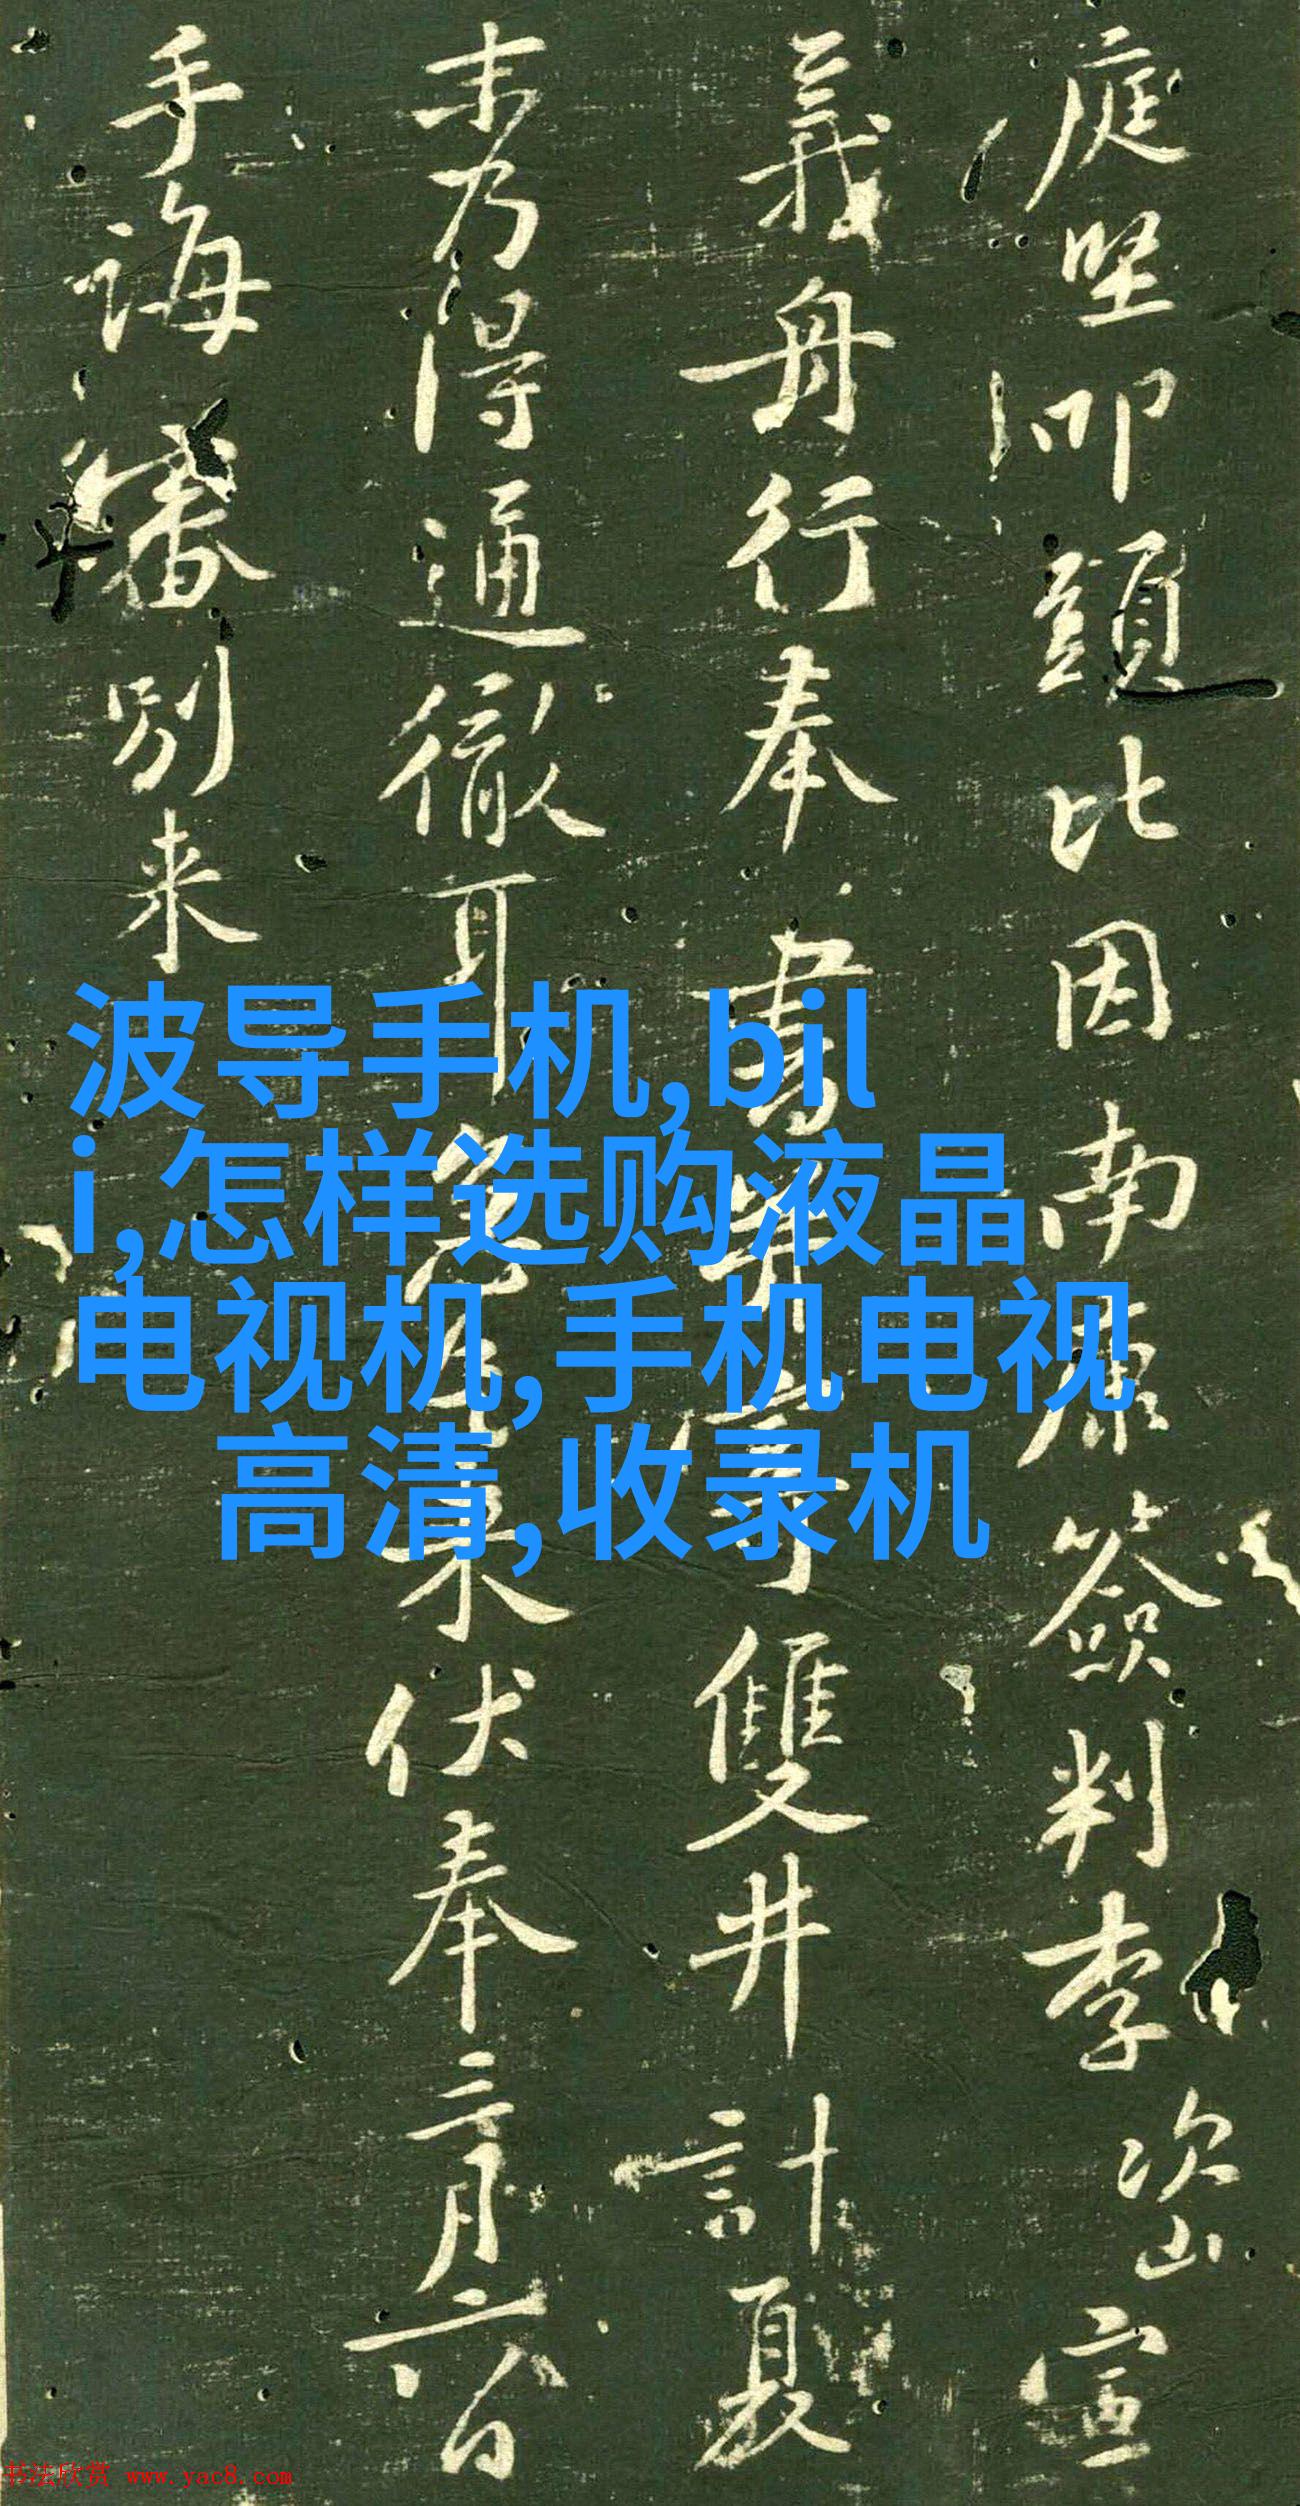 庭堅叩頭比因南康簽判李次山宣
義舟行奉書并寄雙井計夏
末乃得通徹耳急足来伏奉三月六日
手誨審別来
波导手机,bil
i,怎样选购液晶
电视机,手机电视
高清,收录机
书法欣赏 www.yac8.com